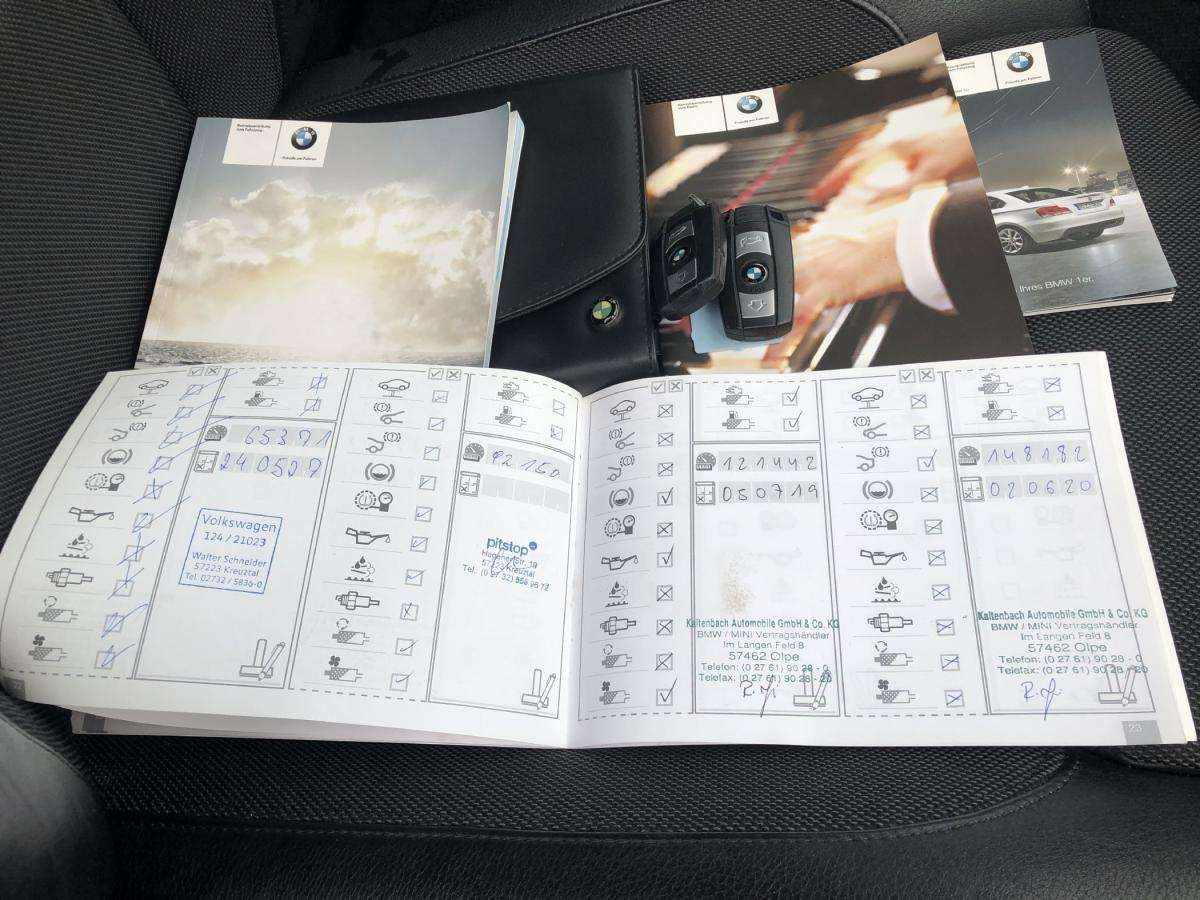 Betriebsanleitung
zum Fahrzeug
Freude am Fahren
Freude am Fahren
Freude am Fahren
Ihres BMW 1er.
65391
Volkswagen
124 / 21023
Walter Schneider
57223 Kreuztal
Tel. 02732 / 5836-0
92150
pitstop
57223 Kreuztal
121442
050719
Kaltenbach Automobile GmbH & Co. KG
BMW / MINI Vertragshändler
Im Langen Feld 8
57462 Olpe
Telefon: (0 27 61) 90 28 - 0
Telefax: (0 27 61) 90 28 - 20
148182
020620
Kaltenbach Automobile GmbH & Co. KG
BMW / MINI Vertragshändler
Im Langen Feld 8
57462 Olpe
Telefon: (0 27 61) 90 28 - 0
Telefax: (0 27 61) 90 28 - 20
23